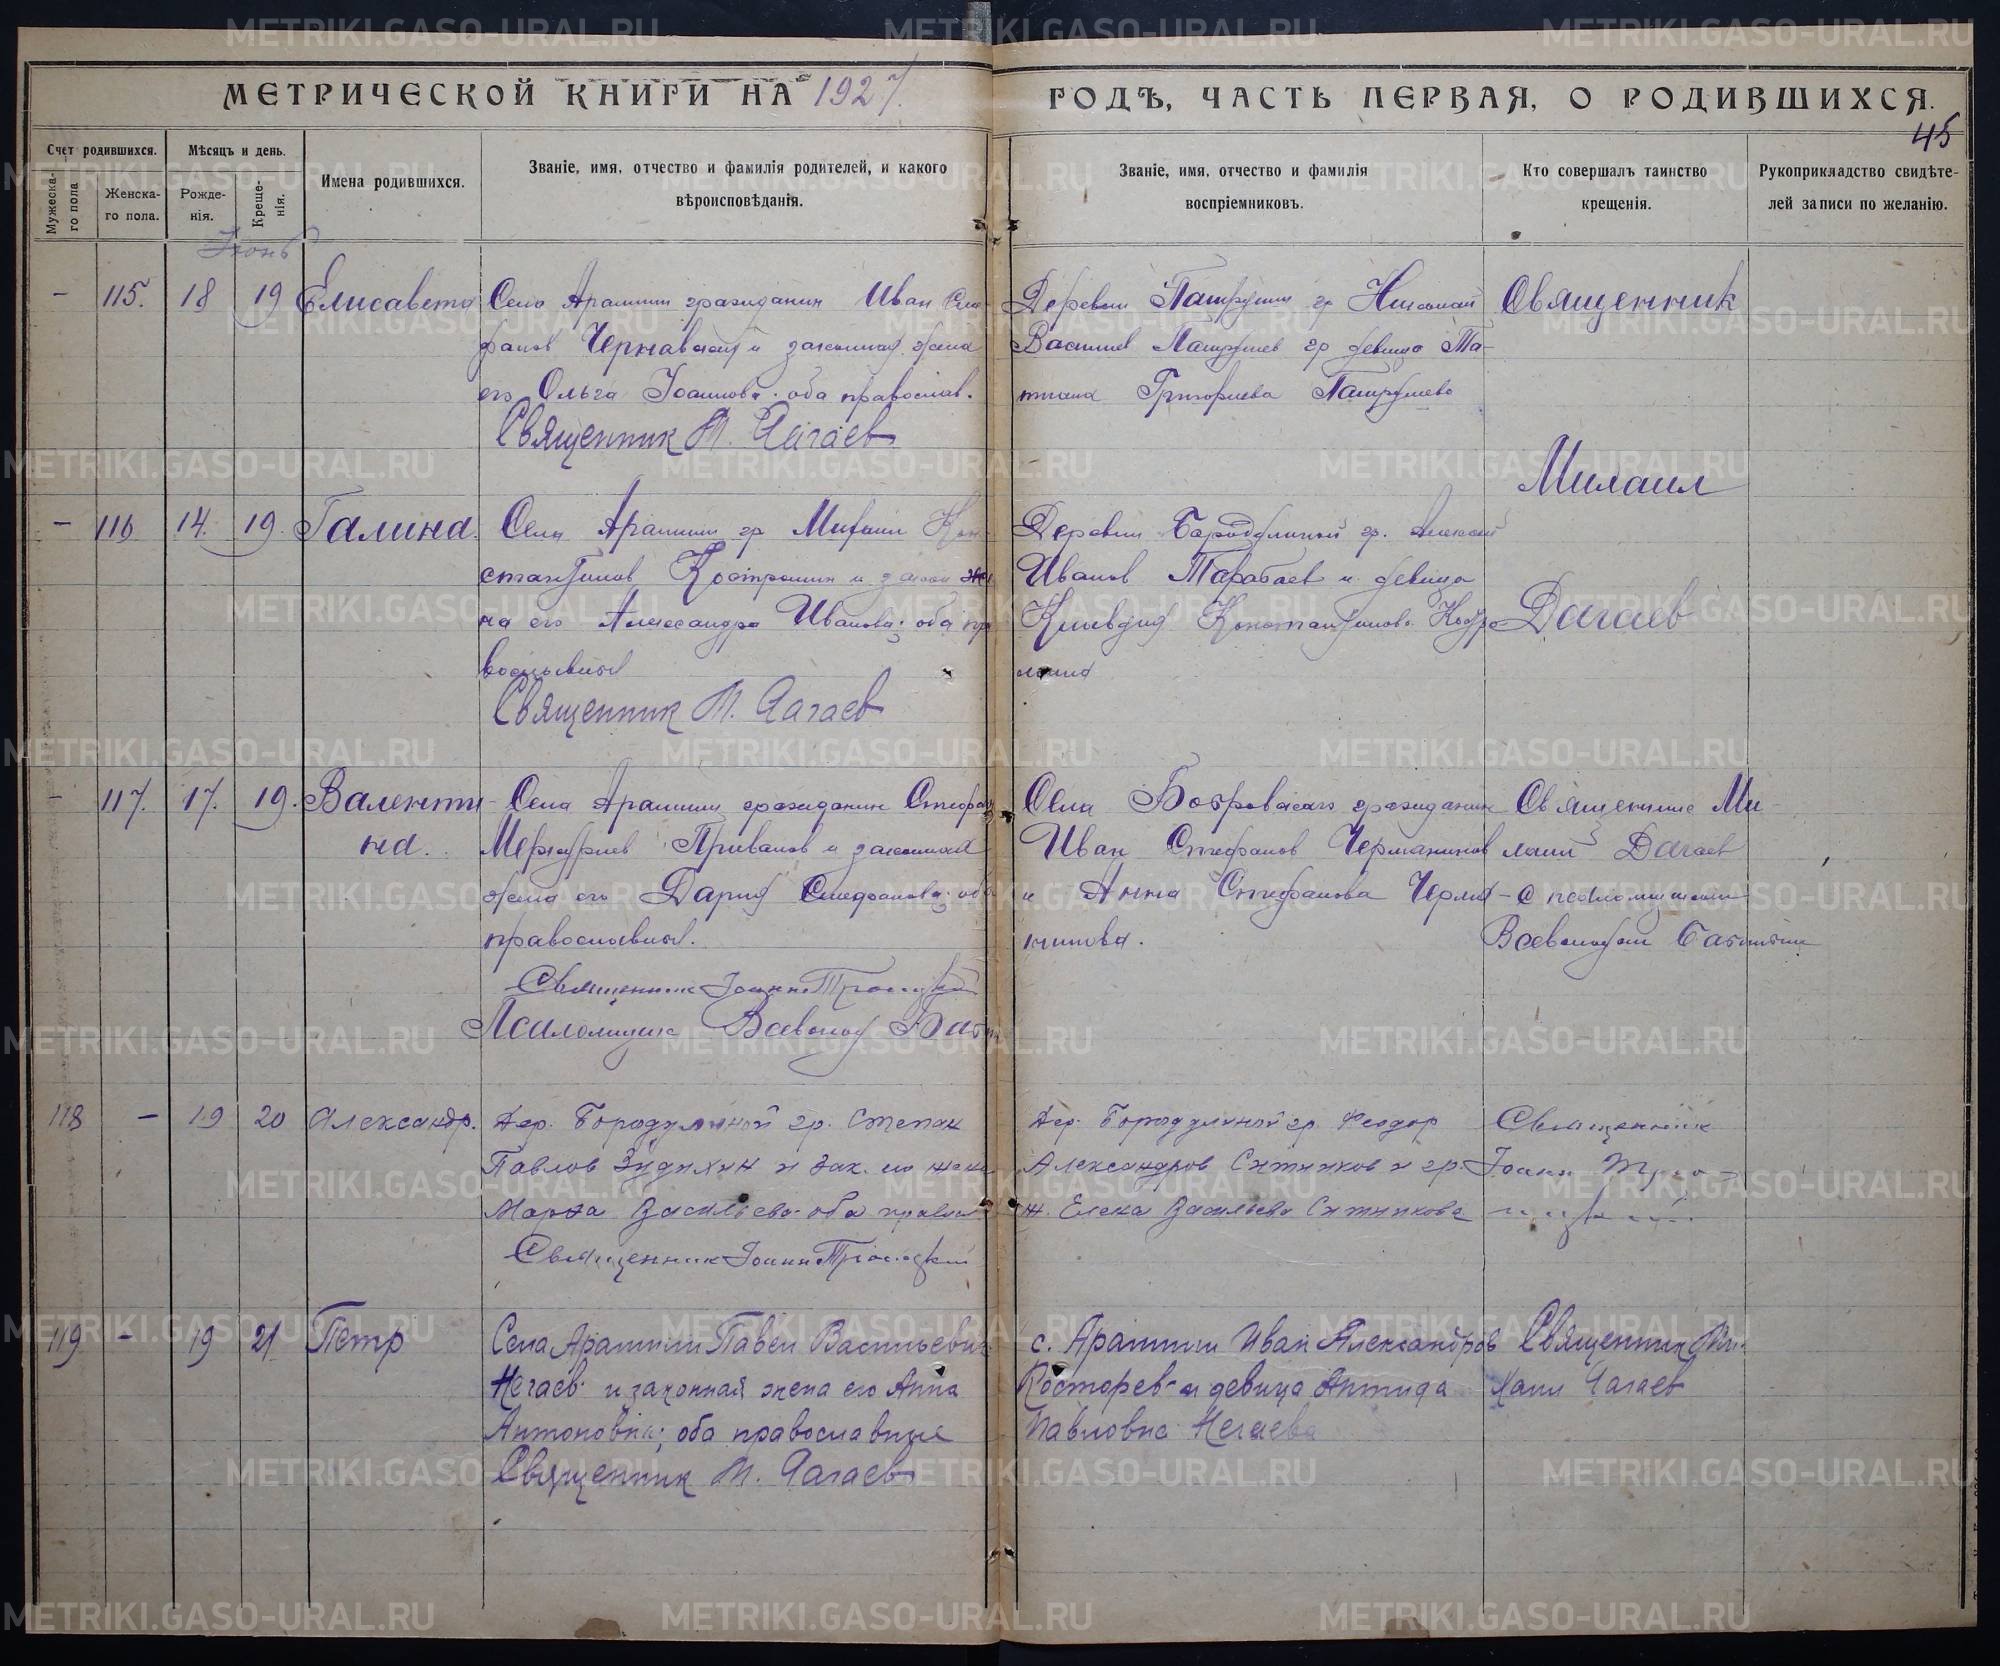 МЕТРИЧЕСКОЙ КНИГИ НА 1927 ГОДЪ, ЧАСТЬ ПЕРВАЯ, О РОДИВШИХСЯ.
45
Счет родившихся.
Мѣсяцъ и день.
Мужеска-
го пола
Женска-
го пола.
Рожде-
нія.
Креще-
нія.
Имена родившихся.
Званіе, имя, отчество и фамилія родителей, и какого
вѣроисповѣданія.
Званіе, имя, отчество и фамилія
воспріемниковъ.
Кто совершалъ таинство
крещенія.
Рукоприкладство свидѣте-
лей записи по желанію.
Июнь
- 115. 18 19 Елисавета
Села Арамили гражданин Иван
Чернавский и законная жена
его Ольга Иоаннова оба православ.
Священник М. Дагаев
Деревни Патруши гр Николай
Василиев Патрушев гр девица Та-
тиана Григориева Патрушева
Священник
Михаил
Дагаев
- 116 14. 19. Галина.
Села Арамили гр Михаил Кон-
стантинов и закон же
на его Александра Иванова; оба пра
вославныя
Священник М. Дагаев
Деревни Бородулиной гр. Алексей
Иванов Тарабаев и девица
Клавдия Константинова
- 117. 17. 19. Валенти-
на.
Села Арамили гражданин Стефан
Меркуриев Приванов и законная
жена его Дария Стефанова; оба
православныя.
Священник Иоанн Троицкий
Псаломщик Всеволод
Села Бобровскаго гражданин
Иван Стефанов Черманинов
и Анна Стефанова Черма-
нинова.
Священник Ми-
хаил Дагаев
с псаломщиком
Всеволодом
118 - 19 20 Александр.
Дер. Бородулиной гр. Степан
Павлов Зудихин и зак. его жена
Марфа Васильева оба правосл.
Священник Иоанн Троицкий
Дер. Бородулиной гр. Феодор
Александров Ситников и гр.
ж. Елена Васильева Ситникова
Священник
Иоанн Трои-
цкий
119 - 19 21 Петр
Села Арамили Павел Васильевич
Нагаев и законная жена его Анна
Антоновна; оба православные
Священник М. Дагаев
с. Арамили Иван Александров
Косторев и девица
Павловна Нагаева
Священник Ми-
хаил Дагаев
METRIKI.GASO-URAL.RU